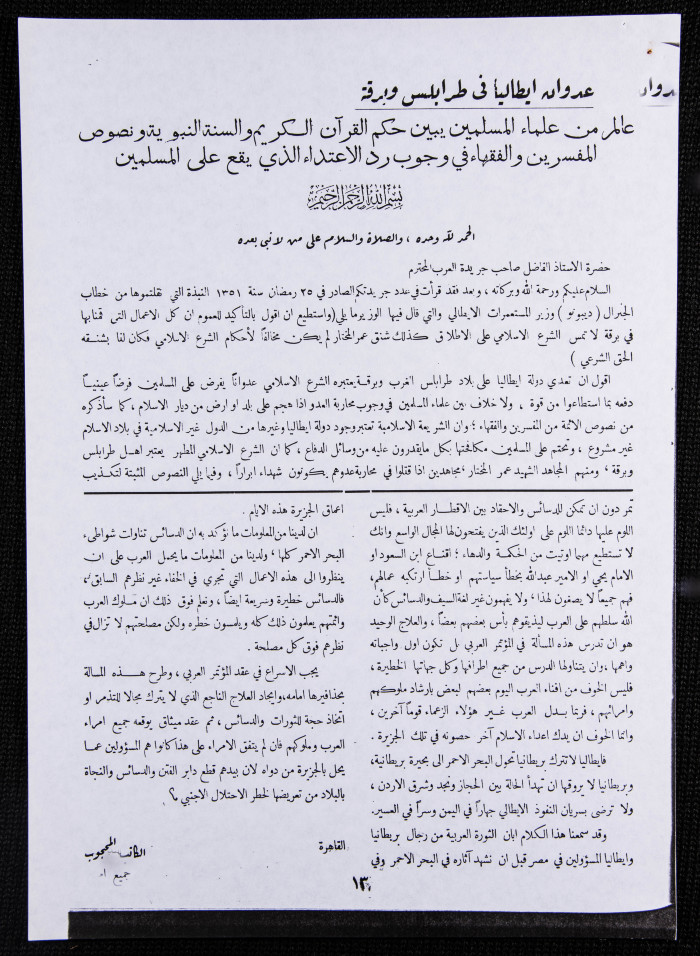 عدوان ايطاليا في طرابلس وبرقة
عالم من علماء المسلمين يبين حكم القرآن الكريم والسنة النبوية ونصوص
المفسرين والفقهاء في وجوب رد الاعتداء الذي يقع على المسلمين
بسم الله الرحمن الرحيم
الحمد لله وحده ، والصلاة والسلام على من لا نبي بعده
حضرة الاستاذ الفاضل صاحب جريدة العرب المحترم
السلام عليكم ورحمة الله وبركاته ، وبعد فقد قرأت في عدد جريدتكم الصادر في ٢٥ رمضان سنة ١٣٥١ النبذة التي نقلتموها من خطاب
الجنرال ( ديبونو ) وزير المستعمرات الايطالي والتي قال فيها الوزير ما يلي (واستطيع ان اقول بالتأكيد للعموم ان كل الاعمال التي قمنا بها
في برقة لا تمس الشرع الاسلامي على الاطلاق كذلك شنق عمر المختار لم يكن مخالفاً لأحكام الشرع الاسلامي فكان لنا بشنقه
الحق الشرعي )
اقول ان تعدي دولة ايطاليا على بلاد طرابلس الغرب وبرقة يعتبره الشرع الاسلامي عدواناً يفرض على المسلمين فرضاً عينياً
دفعه بما استطاعوا من قوة ، ولا خلاف بين علماء المسلمين في وجوب محاربة العدو اذا هجم على بلد او ارض من ديار الاسلام ، كما سأذكره
من نصوص الائمة من المفسرين والفقهاء ؛ وان الشريعة الاسلامية تعتبر وجود دولة ايطاليا وغيرها من الدول غير الاسلامية في بلاد الاسلام
غير مشروع ، وتحتم على المسلمين مكافحتها بكل ما يقدرون عليه من وسائل الدفاع ، كما ان الشرع الاسلامي المطهر يعتبر اهل طرابلس
وبرقة ، ومنهم المجاهد الشهيد عمر المختار ؛ مجاهدين اذا قتلوا في محاربة عدوهم يكونون شهداء ابراراً ، وفيما يلي النصوص المثبتة لتكذيب
تمر دون ان تمكن للدسائس والاحقاد بين الاقطار العربية ، فليس
اللوم عليها دائماً اللوم على اولئك الذين يفتحون لها المجال الواسع وانك
لا تستطيع مهما اوتيت من الحكمة والدهاء ؛ اقناع ابن السعود او
الامام يحي او الامير عبدالله بخطأ سياستهم او خطأ ارتكبه عمالهم،
فهم جميعاً لا يصغون لهذا؛ ولا يفهمون غير لغة السيف والدسائس كأن
الله سلطهم على العرب ليذيقوهم بأس بعضهم بعضاً ، والعلاج الوحيد
هو ان تدرس هذه المسألة في المؤتمر العربي بل تكون اول واجباته
واهمها ،وان يتناولها الدرس من جميع اطرافها وكل جهاتها الخطيرة ،
فليس الخوف من افناء العرب اليوم بعضهم لبعض بارشاد ملوكهم
وامرائهم ، فربما يبدل العرب غير هؤلاء الزعماء قوماً آخرين ،
وانما الخوف ان يدك اعداء الاسلام آخر حصونه في تلك الجزيرة .
فايطاليا لا تترك بريطانيا تحول البحر الاحمر الى بحيرة بريطانية،
وبريطانيا لا يروقها ان تهدأ الحالة بين الحجاز ونجد وشرق الاردن ،
ولا ترضى بسريان النفوذ الايطالي جهاراً في اليمن وسراً في العسير.
وقد سمعنا هذا الكلام ابان الثورة العربية من رجال بريطانيا
وايطاليا المسؤولين في مصر قبل ان نشهد آثاره في البحر الاحمر وفي
اعماق الجزيرة هذه الايام .
ان لدينا من المعلومات ما نؤكد به ان الدسائس تناولت شواطىء
البحر الاحمر كلها ؛ ولدينا من المعلومات ما يحمل العرب على ان
ينظروا الى هذه الاعمال التي تجري في الخفاء غير نظرهم السابق،
فالدسائس خطيرة وسريعة ايضاً ، ونعلم فوق ذلك ان ملوك العرب
وائمتهم يعلمون ذلك كله ويلمسون خطره ولكن مصلحتهم لا تزال في
نظرهم فوق كل مصلحة .
يجب الاسراع في عقد المؤتمر العربي ، وطرح هذه المسألة
بحذافيرها امامه،وايجاد العلاج الناجع الذي لا يترك مجالا للتذمر او
اتخاذ حجة للثورات والدسائس ، ثم عقد ميثاق يوقعه جميع امراء
العرب وملوكهم فان لم يتفق الامراء على هذا كانوا هم المسؤولين عما
يحل بالجزيرة من دواه لان بيدهم قطع دابر الفتن والدسائس والنجاة
بالبلاد من تعريضها لخطر الاحتلال الاجنبي ؟
القاهرة
الكاتب المحجوب
جميع
١٣